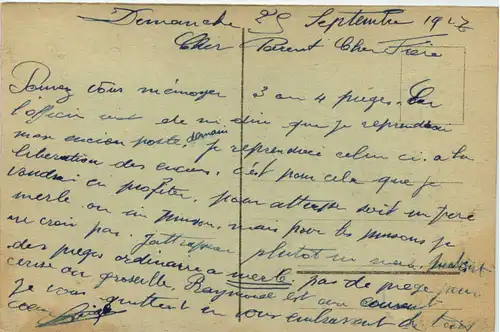 Demanche 25 Septembre 1927
Cher Parent Cher Frère
Pouvez vous m'envoyer 3 ou 4 pièges. Car
l'officier vient de me dire que je reprendrai
mon ancien poste demain je reprendrai celui ci a la
liberation des anciens, c'est pour cela que je
voudrai en profiter, pour attraper soit un petit
merle ou un pinson, mais pour les pinsons je
ne crois pas. J'attraperai plutot un
des pieges ordinaire a merle, pas de piege
cerise ou groseille, Raymond est au courant
Je vous quittent en vous embrassant de tous
coeur